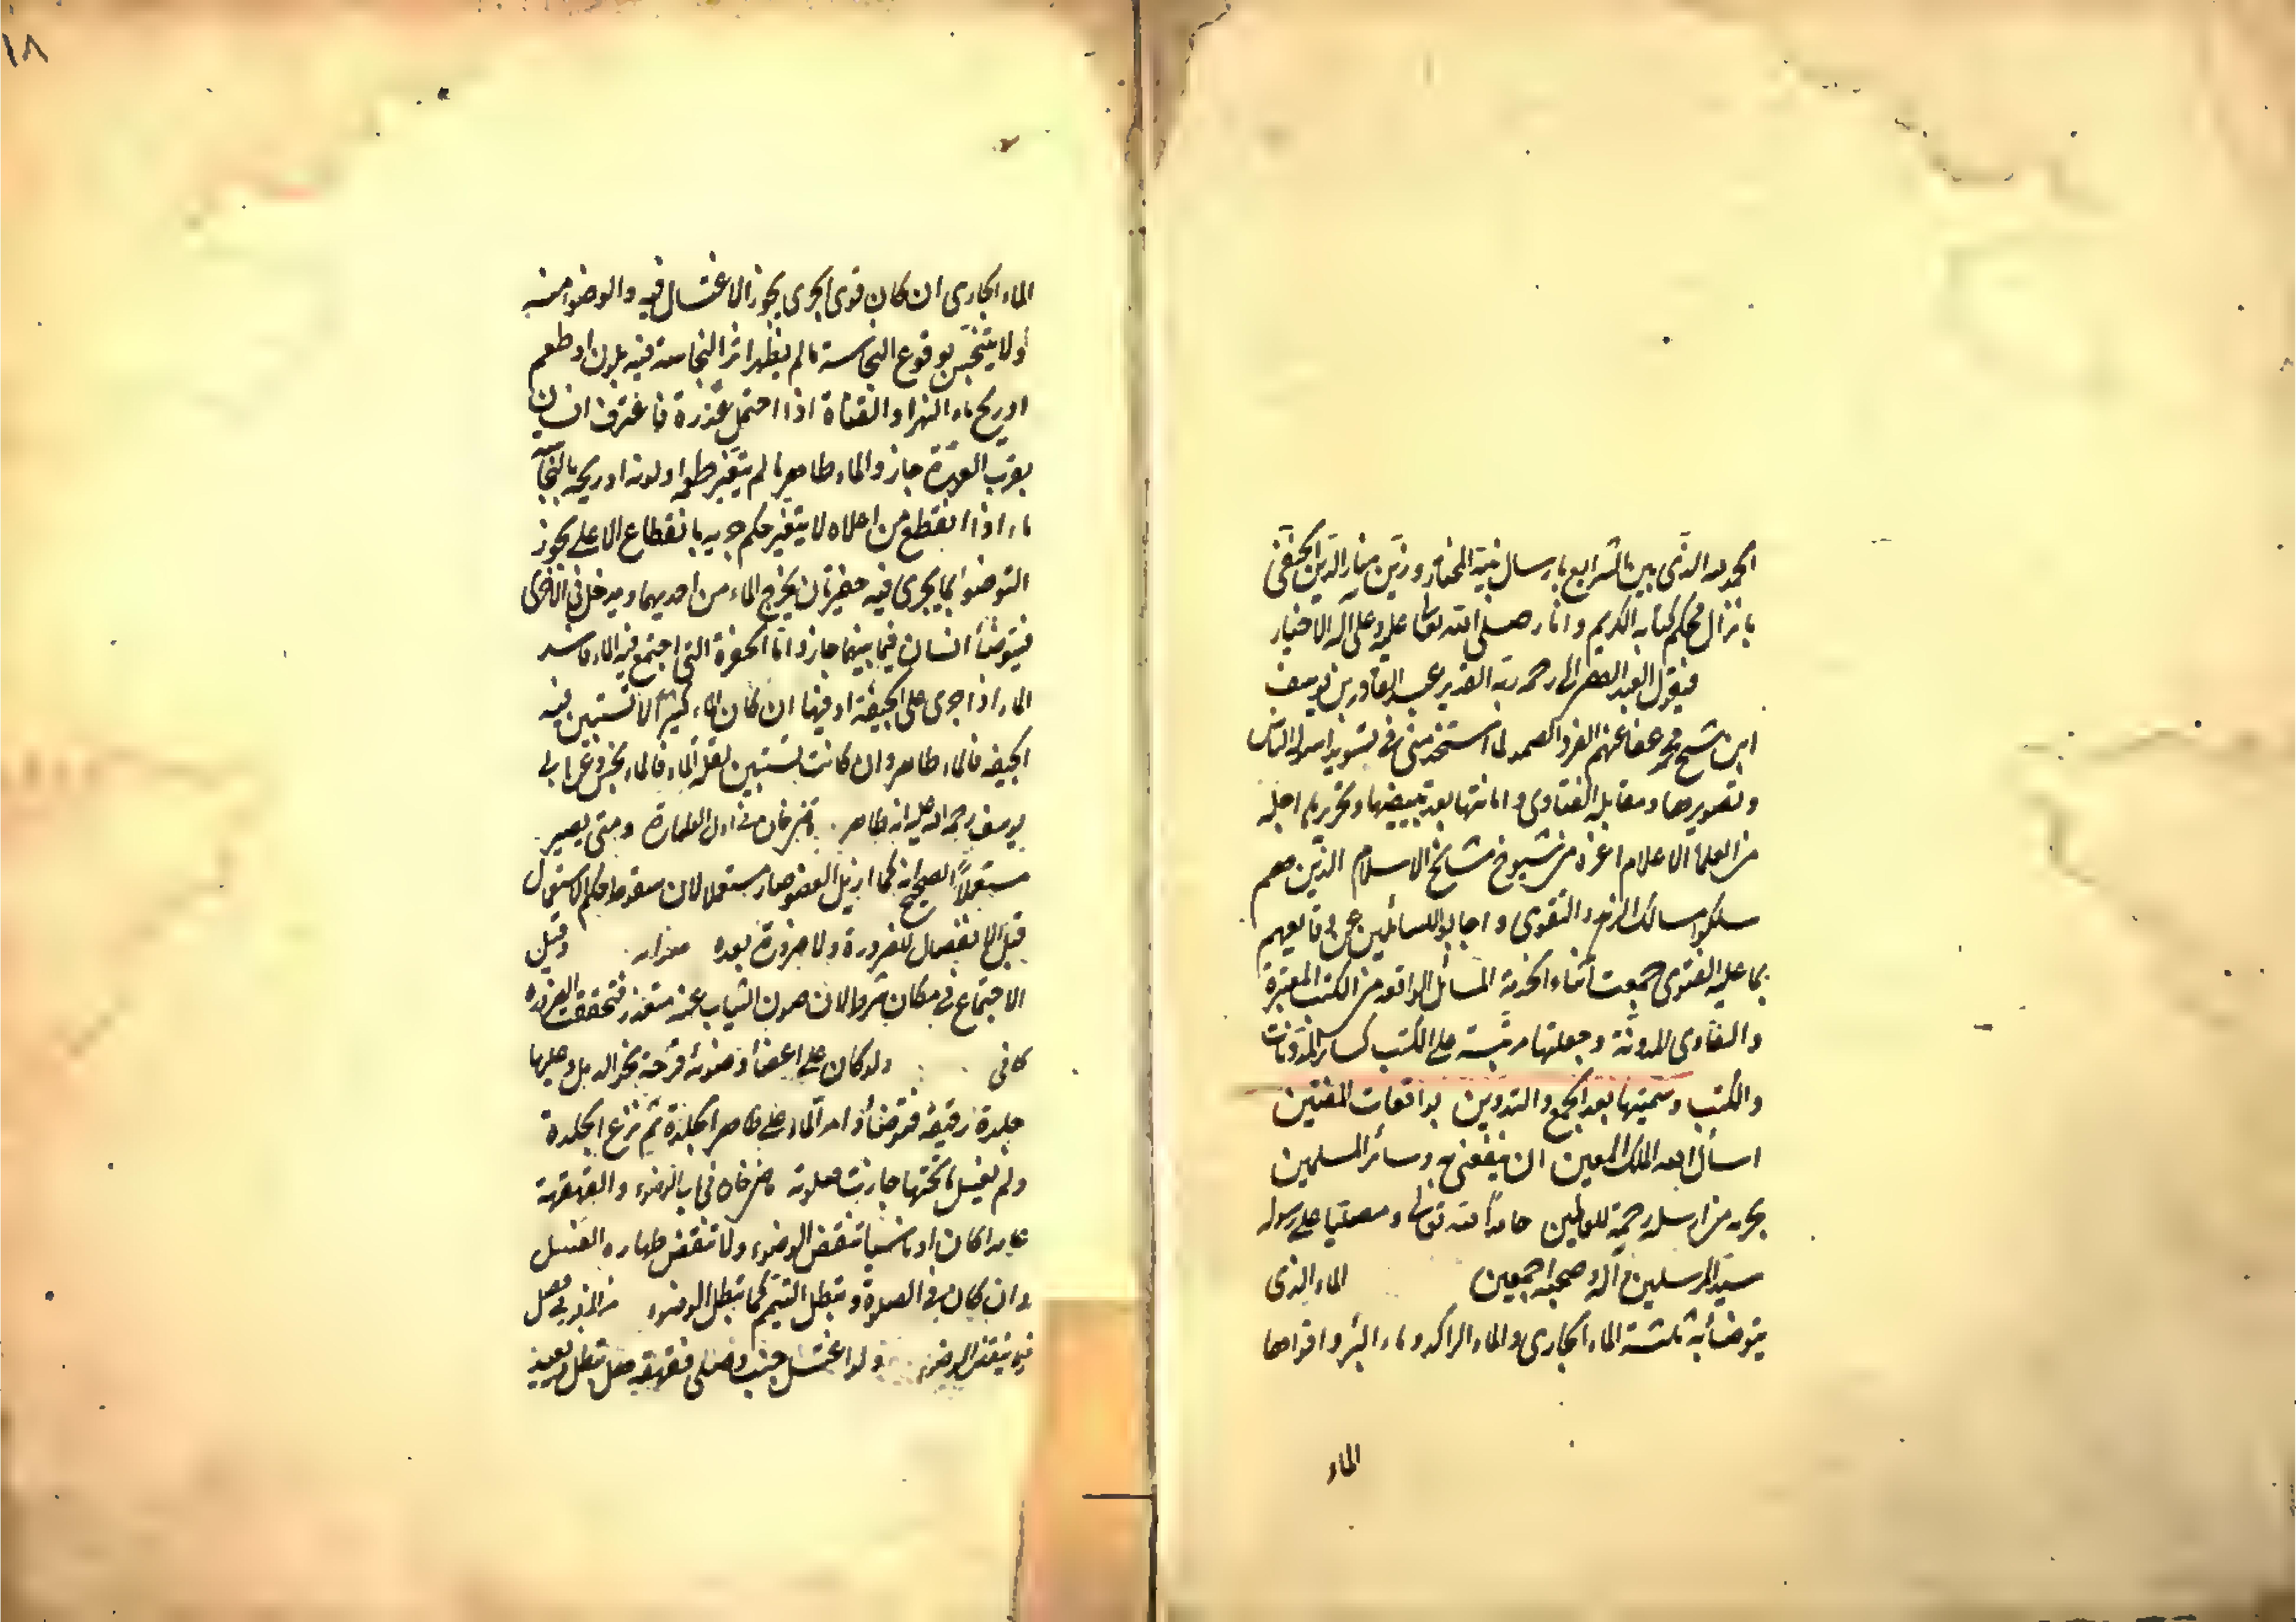 الحمد لله الذى بين الشرايع بارسال نبيه المختار وزين منار الدين الحنفى
بانزال محكم كتابه الكريم وانار صلى الله تعالى عليه وعلى آله الاخيار
فيقول العبد الفقير الى رحمة ربه القدير عبد القادر بن يوسف
ابن شيخ محمد عفا عنهم الفرد الصمد لما استخدمنى فى تسويد اسولة الناس
وتصويرها ومقابلة الفتاوى وامانتها بعد تبييضها وتحريرها اجلة
من العلماء الاعلام اعزة من شيوخ مشايخ الاسلام الذين هم
سلكوا مسالك الزهد والتقوى واجابوا للسائلين عن وقايعهم
بما عليه الفتوى جمعت اثناء الخدمة المسائل الواقعة من الكتب المعتبرة
والفتاوى المدونة وجعلتها مرتبة على الكتب كسائر المدونات
والكتب وسميتها بعد الجمع والتدوين بواقعات المفتين
اسأل الله الملك المعين ان ينفعنى به وسائر المسلمين
بحرمة من ارسله رحمة للعالمين حامدا لله تعالى ومصليا على رسوله
سيد المرسلين وآله وصحبه اجمعين الماء الذى
يتوضأ به ثلثة الماء الجارى والماء الراكد وماء البئر واقواها
الماء
١٨
الماء الجارى ان كان قوى الجرى يجوز الاغتسال فيه والوضوء منه
ولا يتنجس بوقوع النجاسة ما لم يظهر اثر النجاسة فيه بلون او طعم
او ريح ماء النهر او القناة اذا احتمل عذرة فاغترف انسان
بقرب العذرة جاز والماء طاهر ما لم يتغير طعمه او لونه او ريحه بالنجاسة
ماء اذا انقطع من اعلاه لا يتغير حكم جريه بانقطاع الاعلى يجوز
التوضؤ بما يجرى فيه حفيرتان يخرج الماء من احديهما ويدخل فى الاخرى
فيتوضأ انسان فيما بينهما جاز واما الحفرة التى اجتمع فيها الماء فاسد
الماء اذا جرى على الجيفة او فيها ان كان الماء كثيرا لا تستبين فيه
الجيفة فالماء طاهر وان كانت تستبين لقلة الماء فالماء نجس وعن ابى
يوسف رحمة الله عليه انه طاهر قاضيخان فى اول الطهارة ومتى يصير
مستعملا الصحيح انه كما ازيل العضو صار مستعملا لان سقوط حكم الاستعمال
قبل الانفصال للضرورة ولا ضرورة بعده وقيل
الاجتماع فى مكان شرط لان صون الثياب عنه متعذر فتحققت الضرورة
كافى ولو كان على اعضاء وضوئه قرحة نحو الدمل وعليها
جلدة رقيقة فتوضأ وامر الماء على ظاهر الجلدة ثم نزع الجلدة
ولم يغسل ما تحتها جازت صلوته قاضيخان فى باب الوضوء والقهقهة
عامدا كان او ناسيا تنقض الوضوء ولا تنقض طهارة الغسل
وان كان فى الصلوة وتبطل التيمم كما تبطل الوضوء من المزبور فى فصل
فيما ينقض الوضوء ولو اغتسل جنب وصلى فقهقه هل تبطل ويعيد